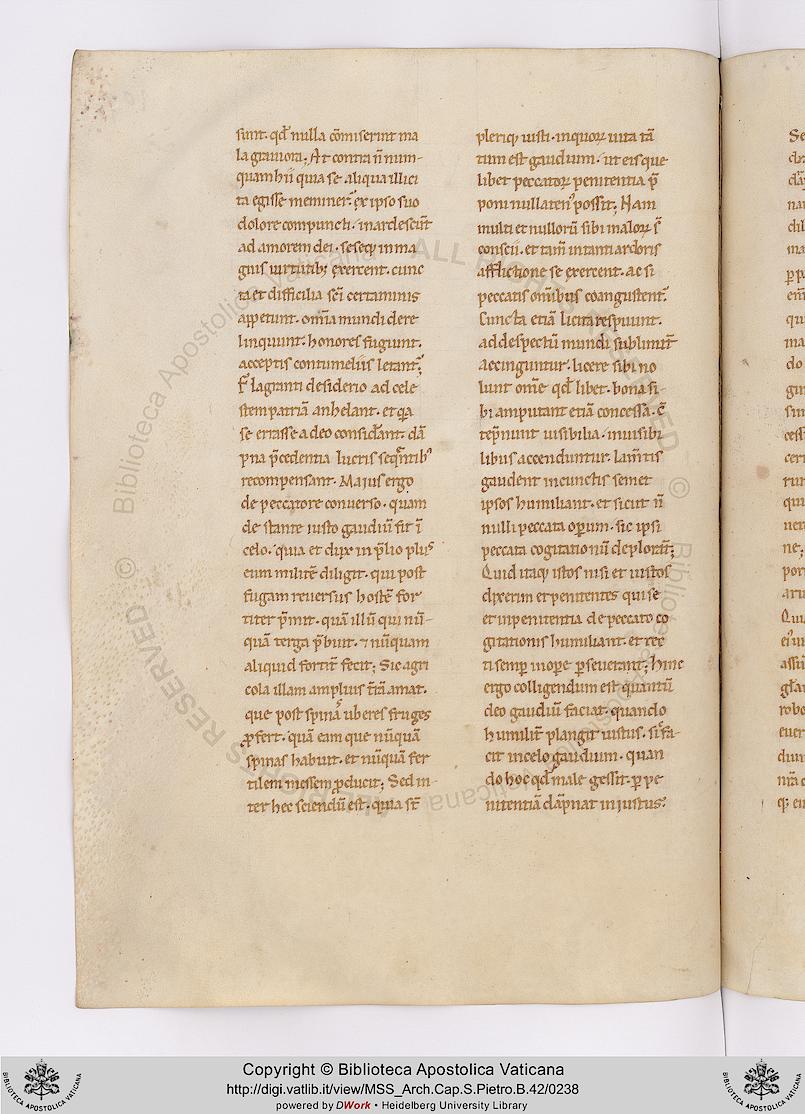 sunt. qđ nulla cōmiserint ma
la graviora; At contra n̄ num-
quam hii quia se aliqua illici
ta egisse meminer̄. ex ipso suo
dolore compuncti. inardescūt
ad amorem dei. seseq; in ma
gnis uirtutib; exercent. cunc
ta et difficilia sc̄i certaminis
appetunt. om̄ia mundi dere
linquunt. honores fugiunt.
acceptis contumeliis letant᷑.
Flagranti desiderio ad cele
stem patriā anhelant. et q̄a
se errasse a deo considant. dā
p̄na p̄cedentia lucris seq̄ntib᷒
recompensant. Maius ergo
de peccatore converso. quam
de stante iusto gaudiū fit ī
celo. quia et dux in p̄lio plus
eum militē diligit. qui post
fugam reversus hostē for
titer p̄mit. quā illū qui nū-
quā terga p̄buit. ⁊ nūquam
aliquid fortit̄ fecit; Sic agri
cola illam amplius t̄rā amat.
que post spinas uberes fruges
ꝓfert. quā eam que nūquā
spinas habuit. et nūquā fer
tilem messem ꝓducit; Sed in-
ter hec sciendū est. quia s̄t
pleriq; iusti. in quoꝝ uita tā
tum est gaudium. ut eis que
libet peccatoꝝ penitentia p̄
poni nullaten᷒ possit; Nam
multi et nulloꝝ sibi maloꝝ s̄
conscii. et tam̄ in tanti ardoris
afflictione se exercent. ac si
peccatis om̄ibus coangustent᷑.
Cuncta etiā licita respuunt.
ad despectū mundi sublimit̄
accinguntur. licere sibi no
lunt om̄e qđ libet. bona si-
bi amputant etiā concessa. c̄
tēpnunt uisibilia. inuisibi
libus accenduntur. lam̄tis
gaudent in cunctis semet
ipsos humiliant. et sicut n̄
nulli peccata oꝑum. sic ipsi
peccata cogitationū deplorāt;
Quid itaq; istos nisi et iustos
dixerim et penitentes qui se
et in penitentia de peccato co
gitationis humiliant. et rec
ti semꝑ in oꝑe ꝑseuerant; hinc
ergo colligendum est quantū
deo gaudiū faciat. quando
humilit̄ plangit iustus. si fa-
cit in celo gaudium. quan
do hoc qđ male gessit. ꝑ pe
nitentiā dāpnat iniustus.
Copyright © Biblioteca Apostolica Vaticana
http://digi.vatlib.it/view/MSS_Arch.Cap.S.Pietro.B.42/0238
powered by DWork • Heidelberg University Library